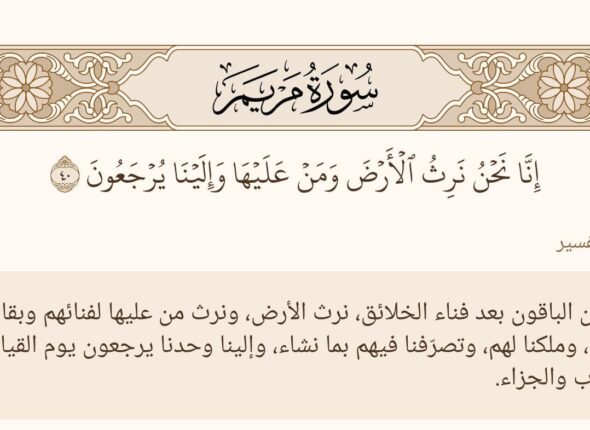 سُورَةُ مَرۡيَمَ
إِنَّا نَحۡنُ نَرِثُ ٱلۡأَرۡضَ وَمَنۡ عَلَيۡهَا وَإِلَيۡنَا يُرۡجَعُونَ ٤٠
الباقون بعد فناء الخلائق، نرث الأرض، ونرث من عليها لفنائهم
، وملكنا لهم، وتصرّفنا فيهم بما نشاء، وإلينا وحدنا يرجعون يوم
والجزاء.